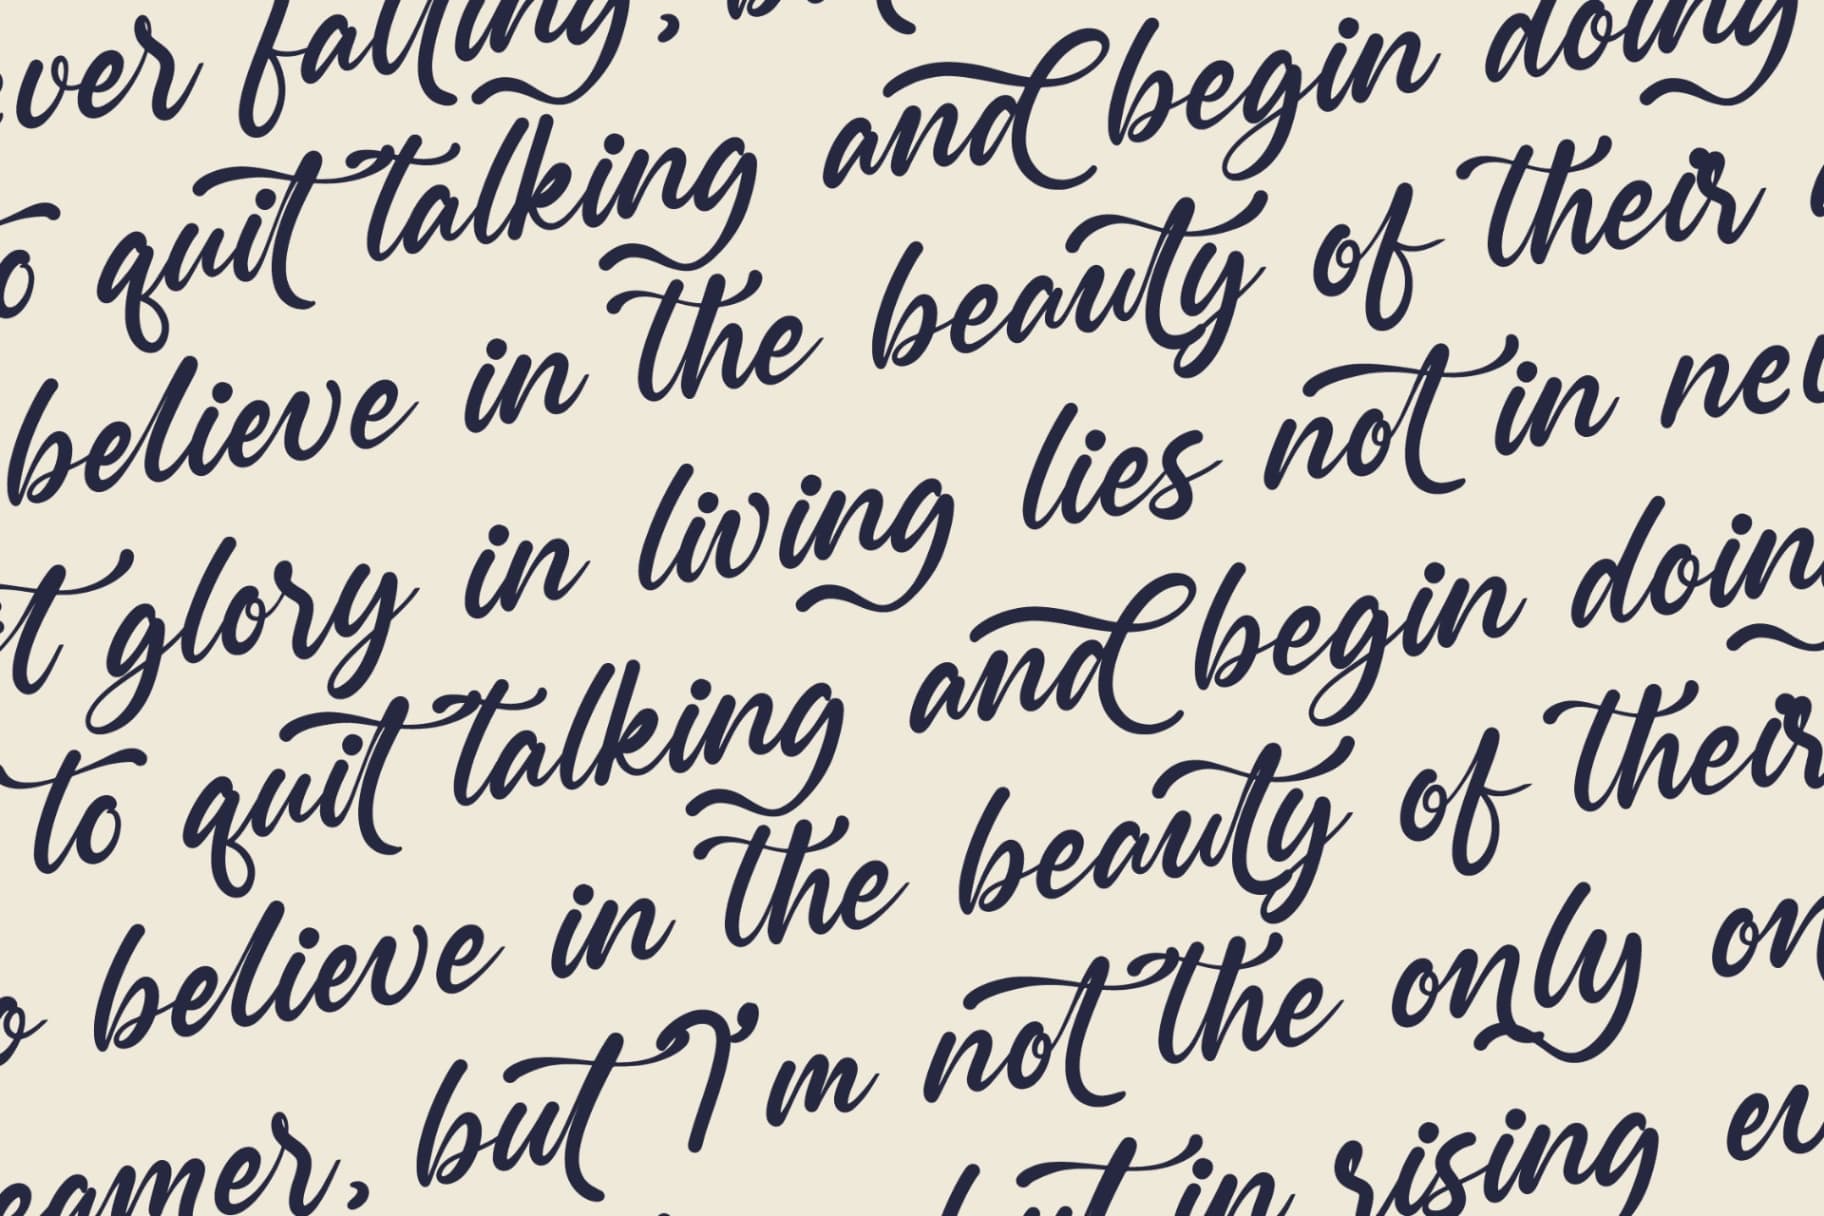 ever falling, but
to quit talking and begin doing
believe in the beauty of their
glory in living lies not in nev
to quit talking and begin doin
believe in the beauty of their
eamer, but I'm not the only on
but in rising ev